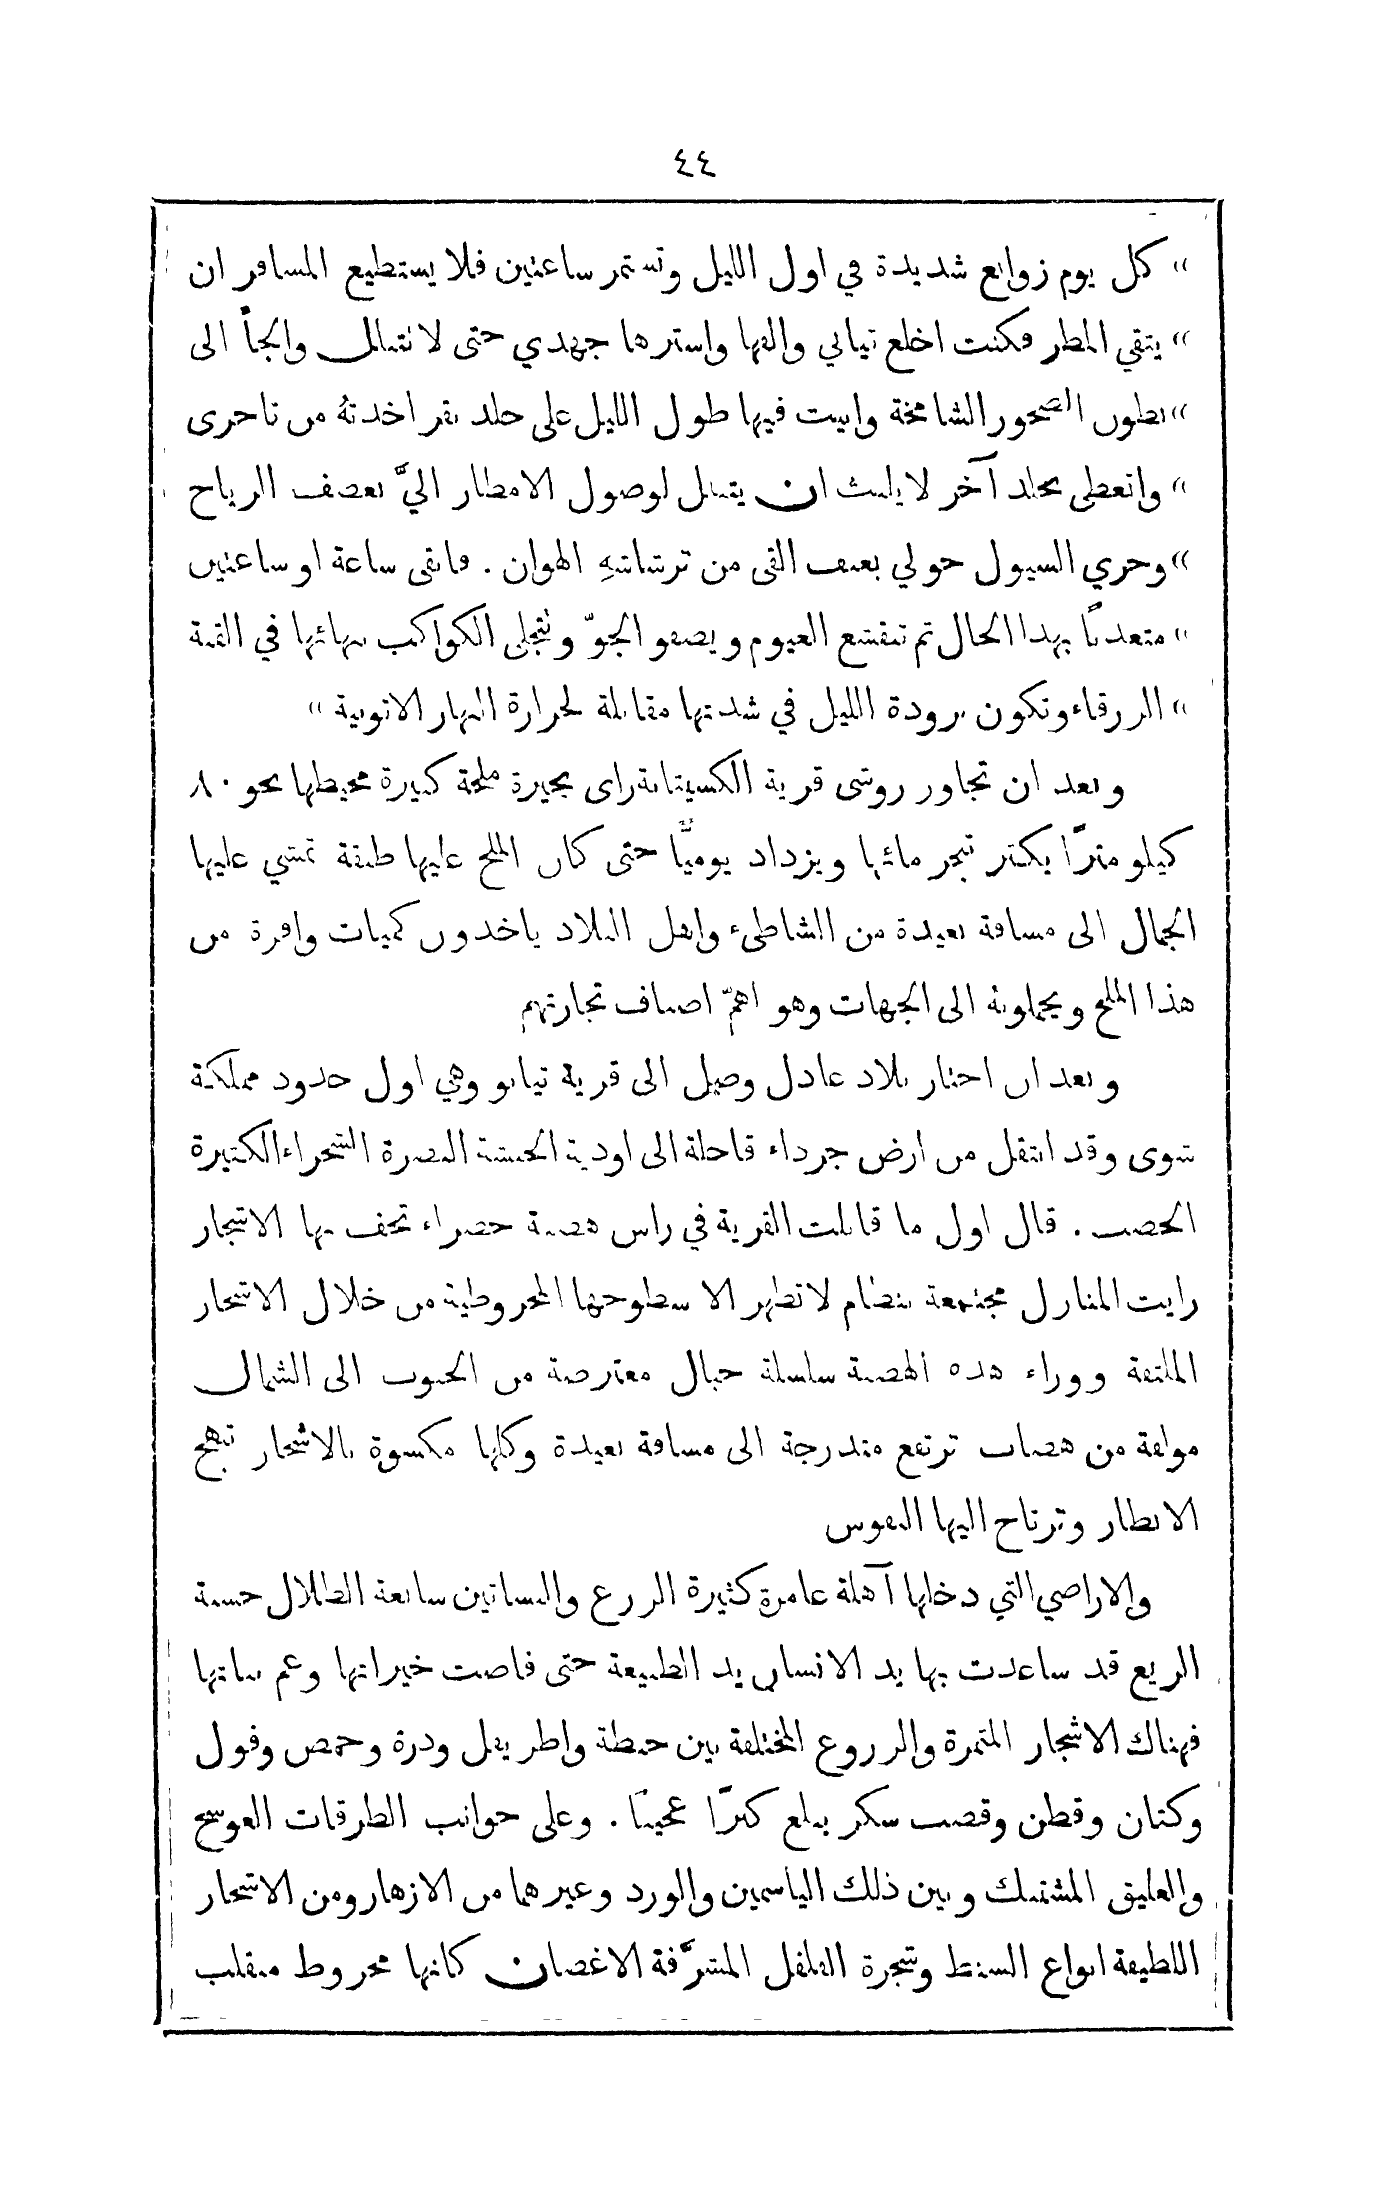 ٤٤
» كل يوم زوابع شديدة في اول الليل وتستمر ساعتين فلا يستطيع المسافر ان
» يتقي المطر فكنت اخلع ثيابي والفها واسترها جهدي حتى لا تتبلل والجأ الى
» بطون الصخور الشامخة وابيت فيها طول الليل على جلد بقر اخذتهُ من تاجرى
» واتغطى بجلد آخر لا يلبث ان يتبلل لوصول الامطار اليَّ بعصف الرياح
» وجري السيول حولي بعنف القى من ترشاشهِ الهوان . فابقى ساعة او ساعتين
» متعذبًا بهذا الحال ثم تنقشع الغيوم ويصفو الجوّ وتتجلى الكواكب ببهائها في القبة
» الزرقاء وتكون برودة الليل في شدتها مقابلة لحرارة النهار الاثيوبية »
وبعد ان تجاوز روشى قرية الكسيتانة راى بحيرة ملحة كبيرة محيطها نحو ٨٠
كيلو مترًا يكثر تبخر مائها ويزداد يوميًّا حتى كان الملح عليها طبقة تمشي عليها
الجمال الى مسافة بعيدة من الشاطىء واهل البلاد ياخذون كميات وافرة من
هذا الملح ويحملونهُ الى الجهات وهو اهمّ اصناف تجارتهم
وبعد ان اجتاز بلاد عادل وصل الى قرية تيانو وهي اول حدود مملكة
شوى وقد انتقل من ارض جرداء قاحلة الى اودية الحبشة النضرة الشجراء الكثيرة
الخصب . قال اول ما قابلت القرية في راس هضبة خضراء تحف بها الاشجار
رايت المنازل مجتمعة بنظام لا تظهر الا سطوحها المخروطية من خلال الاشجار
الملتفة ووراء هذه الهضبة سلسلة جبال معترضة من الجنوب الى الشمال
مولفة من هضاب ترتفع متدرجة الى مسافة بعيدة وكلها مكسوة بالاشجار تبهج
الانظار وترتاح اليها النفوس
والاراضي التي دخلها آهلة عامرة كثيرة الزرع والبساتين سابغة الظلال حسنة
الريع قد ساعدت بها يد الانسان يد الطبيعة حتى فاضت خيراتها وعم نباتها
فهناك الاشجار المثمرة والزروع المختلفة بين حنطة واطريفل وذرة وحمص وفول
وكتان وقطن وقصب سكر يبلغ كبرًا عجيبًا . وعلى جوانب الطرقات العوسج
والعليق المشتبك وبين ذلك الياسمين والورد وغيرهما من الازهار ومن الاشجار
اللطيفة انواع السنط وشجرة الفلفل المشرَّفة الاغصان كانها مخروط منقلب